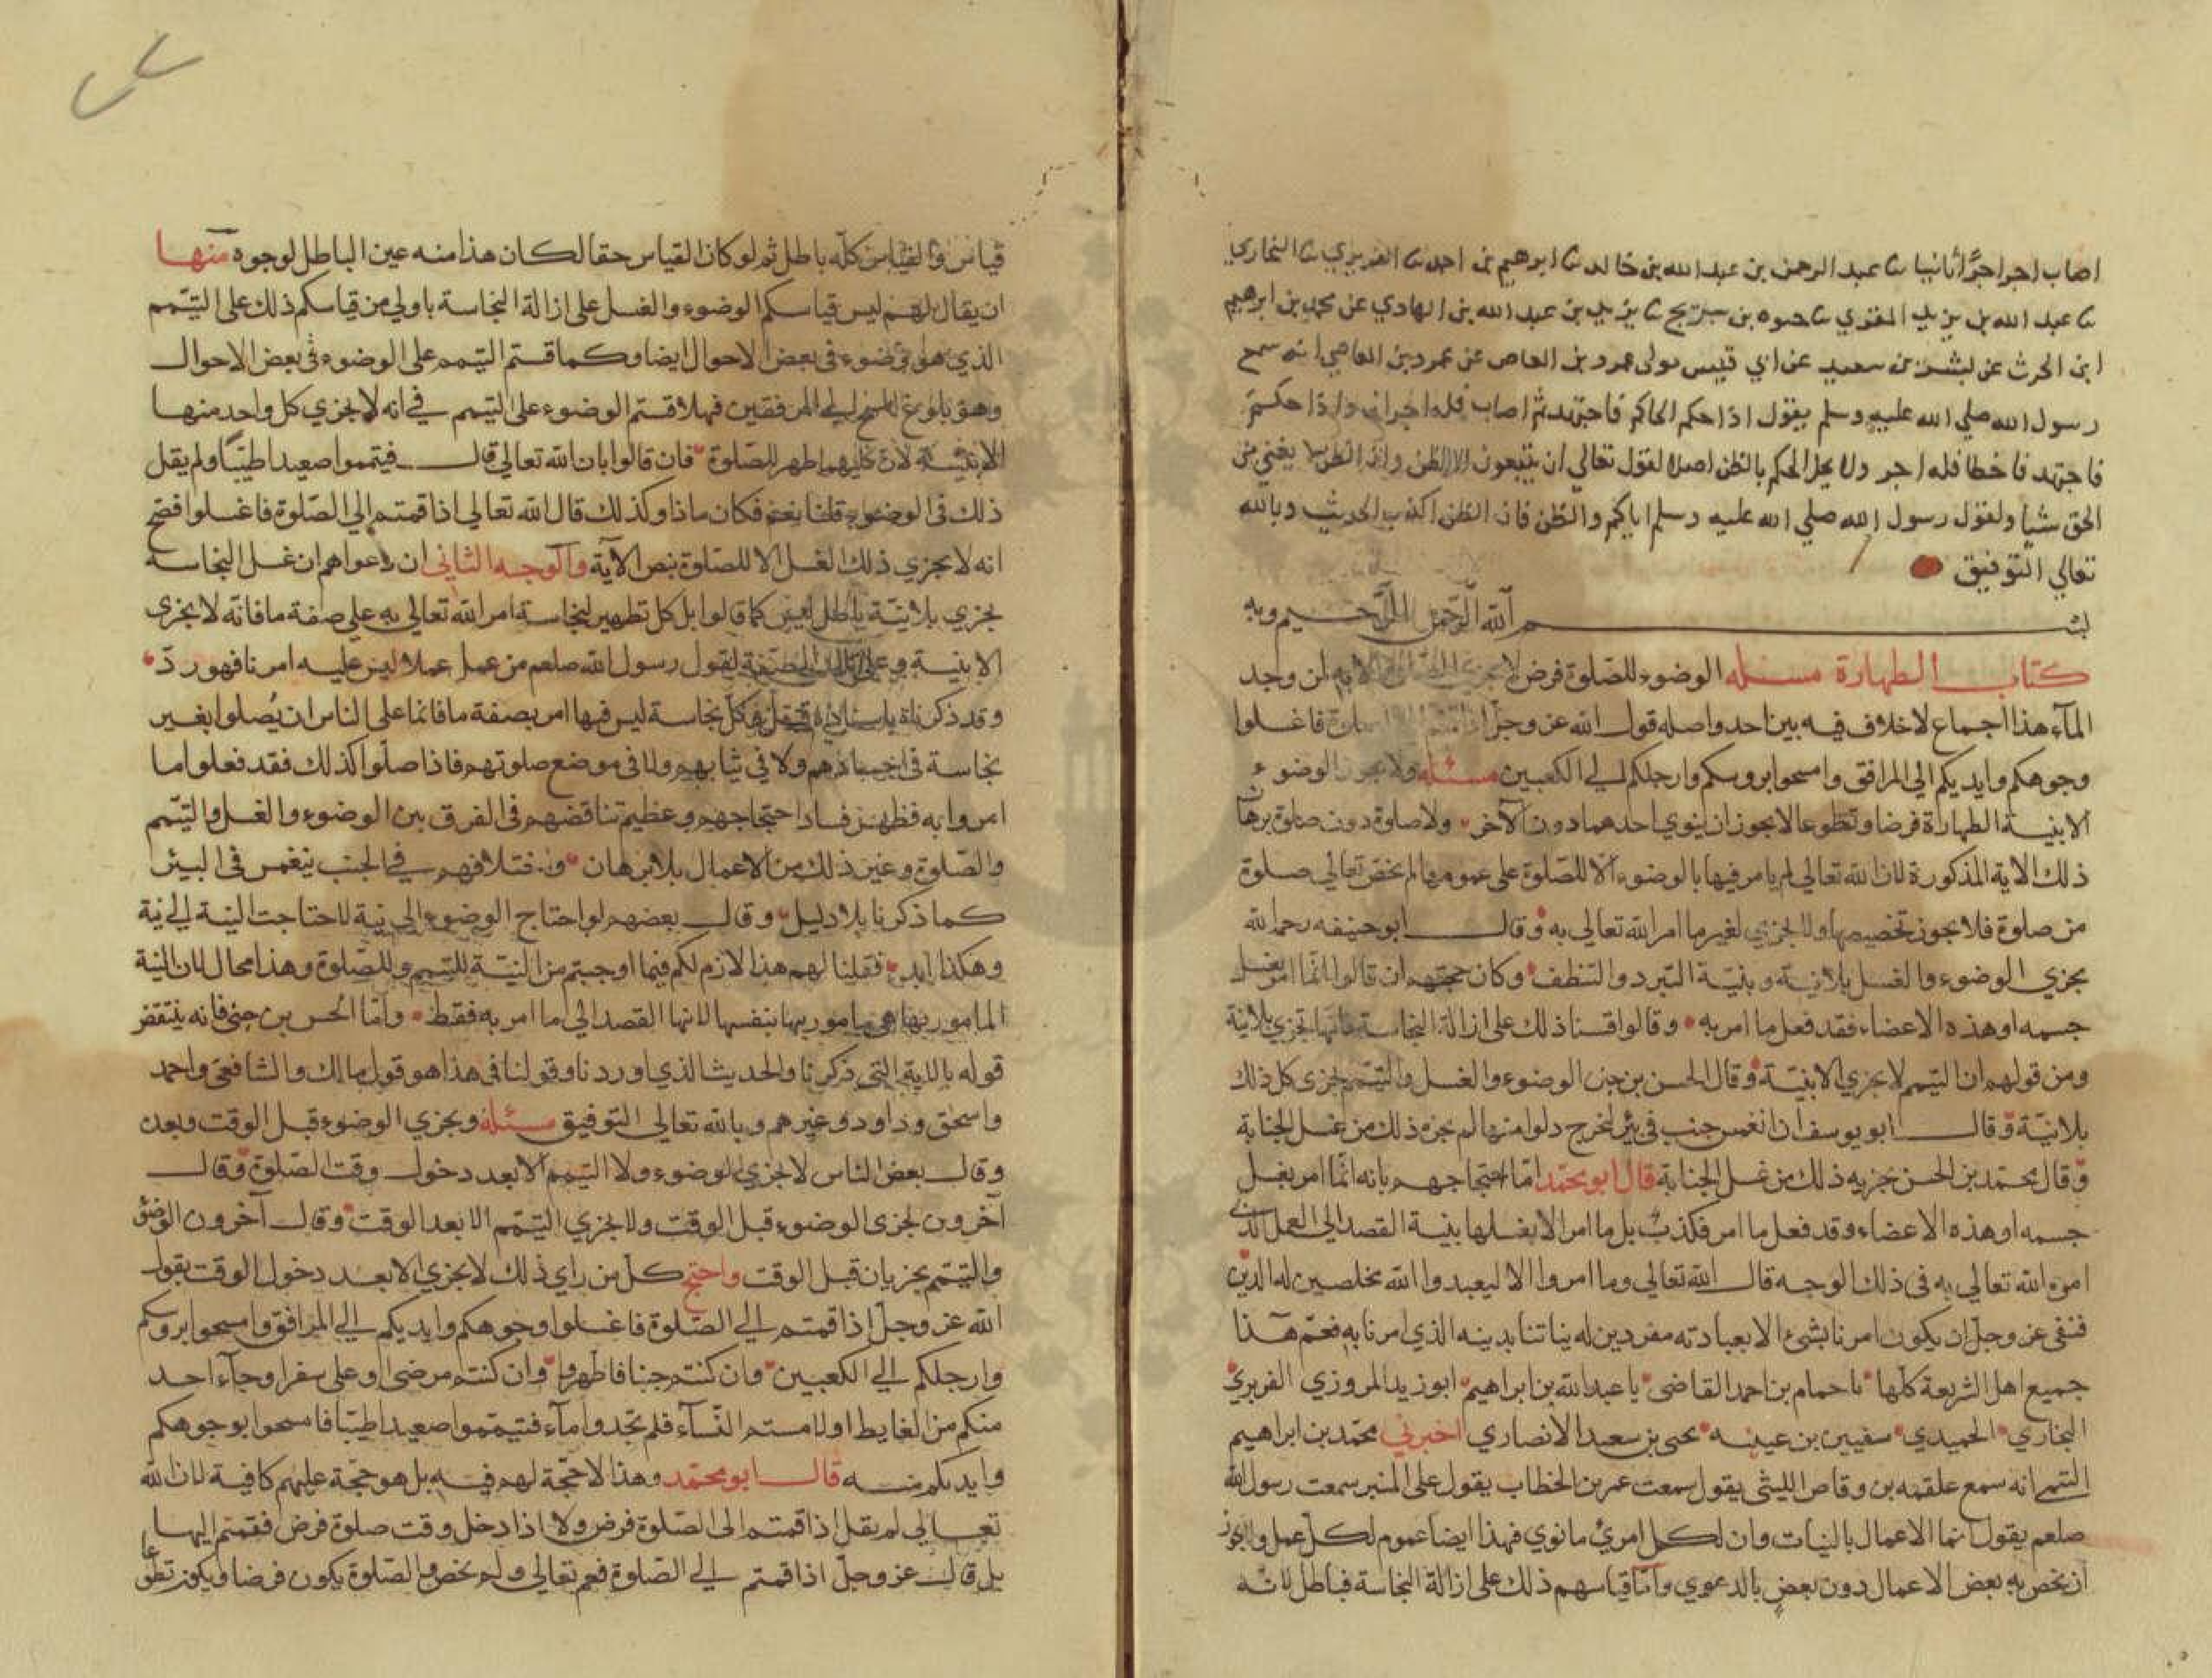 اصاب اجرا جرا أنا نيا ثنا عبد الرحمن بن عبد الله بن خالد ثنا ابرهيم بن احمد ثنا الفربري ثنا البخاري
ثنا عبد الله بن يزيد المقري ثنا حيوه بن شريح ثنا يزيد بن عبد الله بن الهادي عن محمد بن ابرهيم
ابن الحرث عن بشر بن سعيد عن ابي قيس مولى عمرو بن العاص عن عمرو بن العاصي انه سمع
رسول الله صلي الله عليه وسلم يقول اذا حكم الحاكم فاجتهد ثم اصاب فله اجران واذا حكم ثم
فاجتهد فاخطا فله اجر ولا يحل الحكم بالظن اصلا لقول تعالي ان يتبعون الا الظن وان الظن لا يغني من
الحق شيأ ولقول رسول الله صلي الله عليه وسلم اياكم والظن فان الظن اكذب الحديث وبالله
تعالي التوفيق
بسم الله الرحمن الرحيم وبه
كتاب الطهارة مسئله الوضوء للصلوة فرض لا تجزي الصلوة الا به لمن وجد
المآء هذا اجماع لا خلاف فيه بين احد واصله قول الله عز وجل اذا قمتم الي الصلوة فاغسلوا
وجوهكم وايديكم الي المرافق وامسحوا بروسكم وارجلكم الي الكعبين مسئله ولا يجزي الوضوء
الا بنية الطهارة فرضا وتطوعا لا يجوز ان ينوي احدهما دون الآخر ولا صلوة دون صلوة برهان
ذلك الاية المذكورة لان الله تعالي لم يامر فيها بالوضوء الا للصلوة علي عمومها لم يخص تعالي صلوة
من صلوة فلا يجوز تخصيصها ولا يجزي لغير ما امر الله تعالي به وقال ابو حنيفه رحمه الله
يجزي الوضوء والغسل بلا نية وبنية التبرد والتنظف وكان حجتهم ان قالوا انما امر بغسل
جسمه او هذه الاعضاء فقد فعل ما امر به وقالوا قسنا ذلك علي ازالة النجاسة فانها تجزي بلا نية
ومن قولهم ان التيمم لا يجزي الا بنية وقال الحسن بن حي الوضوء والغسل والتيمم يجزي كل ذلك
بلا نية وقال ابو يوسف ان انغمس جنب في بئر ليخرج دلوا منها لم يجزه ذلك من غسل الجنابة
وقال محمد بن الحسن يجزيه ذلك من غسل الجنابة قال ابو محمد اما احتجاجهم بانه انما امر بغسل
جسمه او هذه الاعضاء وقد فعل ما امر فكذب بل ما امر الا بغسلها بنية القصد الي العمل الذي
امره الله تعالي به في ذلك الوجه قال الله تعالي وما امروا الا ليعبدوا الله مخلصين له الدين
فنفي عز وجل ان يكون امرنا بشئ الا بعبادته مفردين له نياتنا بدينه الذي امرنا به فعم هذا
جميع اهل الشريعة كلها نا حمام بن احمد القاضي يا عبد الله بن ابراهيم ابو زيد المروزي الفربري
البخاري الحميدي سفيين بن عيينه يحيى بن سعيد الانصاري اخبرني محمد بن ابراهيم
التيمي انه سمع علقمه بن وقاص الليثي يقول سمعت عمر بن الخطاب يقول علي المنبر سمعت رسول الله
صلعم يقول انما الاعمال بالنيات وان لكل امرئ ما نوي فهذا ايضا عموم لكل عمل ولا يجوز
ان يخص به بعض الاعمال دون بعض بالدعوي واما قياسهم ذلك علي ازالة النجاسة فباطل لانه
قياس والقياس كله باطل ثم لو كان القياس حقا لكان هذا منه عين الباطل لوجوه منها
ان يقال لهم ليس قياسكم الوضوء والغسل علي ازالة النجاسة باولي من قياسكم ذلك علي التيمم
الذي هو وضوء في بعض الاحوال ايضا وكما قستم التيمم علي الوضوء في بعض الاحوال
وهو بلوغ المسح الي المرفقين فهلا قستم الوضوء علي التيمم في انه لا يجزي كل واحد منها
الا بنية لان كليهما طهر للصلوة فان قالوا بان الله تعالي قال فيتمموا صعيدا طيبا ولم يقل
ذلك في الوضوء قلنا نعم فكان ماذا وكذلك قال الله تعالي اذا قمتم الي الصلوة فاغسلوا فصح
انه لا يجزي ذلك الغسل الا للصلوة بنص الآية والوجه الثاني ان دعواهم ان غسل النجاسة
يجزي بلا نية باطل ليس كما قالوا بل كل تطهير لنجاسة امر الله تعالي به علي صفة ما فانه لا يجزي
الا بنية وعلي تلك الصفة لقول رسول الله صلعم من عمل عملا ليس عليه امرنا فهو رد
وقد ذكرناه باسناده قبل كل نجاسة ليس فيها امر بصفة ما فانما علي الناس ان يصلوا بغير
نجاسة في اجسادهم ولا في ثيابهم ولا في موضع صلوتهم فاذا صلوا كذلك فقد فعلوا ما
امروا به فظهر فساد احتجاجهم وعظيم تناقضهم في الفرق بين الوضوء والغسل والتيمم
والصلوة وغير ذلك من الاعمال بلا برهان واختلافهم في الجنب ينغمس في البير
كما ذكرنا بلا دليل وقال بعضهم لو احتاج الوضوء الي نية لاحتاجت النية الي نية
وهكذا ابد فقلنا لهم هذا لازم لكم فيما اوجبتم من النية للتيمم وللصلوة وهذا محال لان النية
المامور بها هي مامور بها بنفسها لانها القصد الي ما امر به فقط واما الحسن بن حي فانه ينتقض
قوله بالاية التي ذكرنا والحديث الذي اوردنا وقولنا في هذا هو قول مالك والشافعي واحمد
واسحق وداود وغيرهم وبالله تعالي التوفيق مسئله ويجزي الوضوء قبل الوقت وبعده
وقال بعض الناس لا يجزي الوضوء ولا التيمم الا بعد دخول وقت الصلوة وقال
آخرون يجزي الوضوء قبل الوقت ولا يجزي التيمم الا بعد الوقت وقال آخرون الوضؤ
والتيمم يجزيان قبل الوقت واحتج كل من راي ذلك لا يجزي الا بعد دخول الوقت بقول
الله عز وجل اذا قمتم الي الصلوة فاغسلوا وجوهكم وايديكم الي المرافق وامسحوا بروسكم
وارجلكم الي الكعبين وان كنتم جنبا فاطهروا وان كنتم مرضي او علي سفر او جآء احد
منكم من الغايط او لامستم النسآء فلم تجدوا مآء فتيمموا صعيدا طيبا فامسحوا بوجوهكم
وايديكم منه قال ابو محمد وهذا لا حجة لهم فيه بل هو حجة عليهم كافية لان الله
تعالي لم يقل اذا قمتم الي الصلوة فرض ولا اذا دخل وقت صلوة فرض فقمتم اليها
بل قال عز وجل اذا قمتم الي الصلوة فعم تعالي ولم يخص والصلوة يكون فرضا ويكون تطوعا